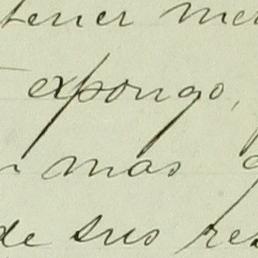 tener
expongo,
mas
de sus